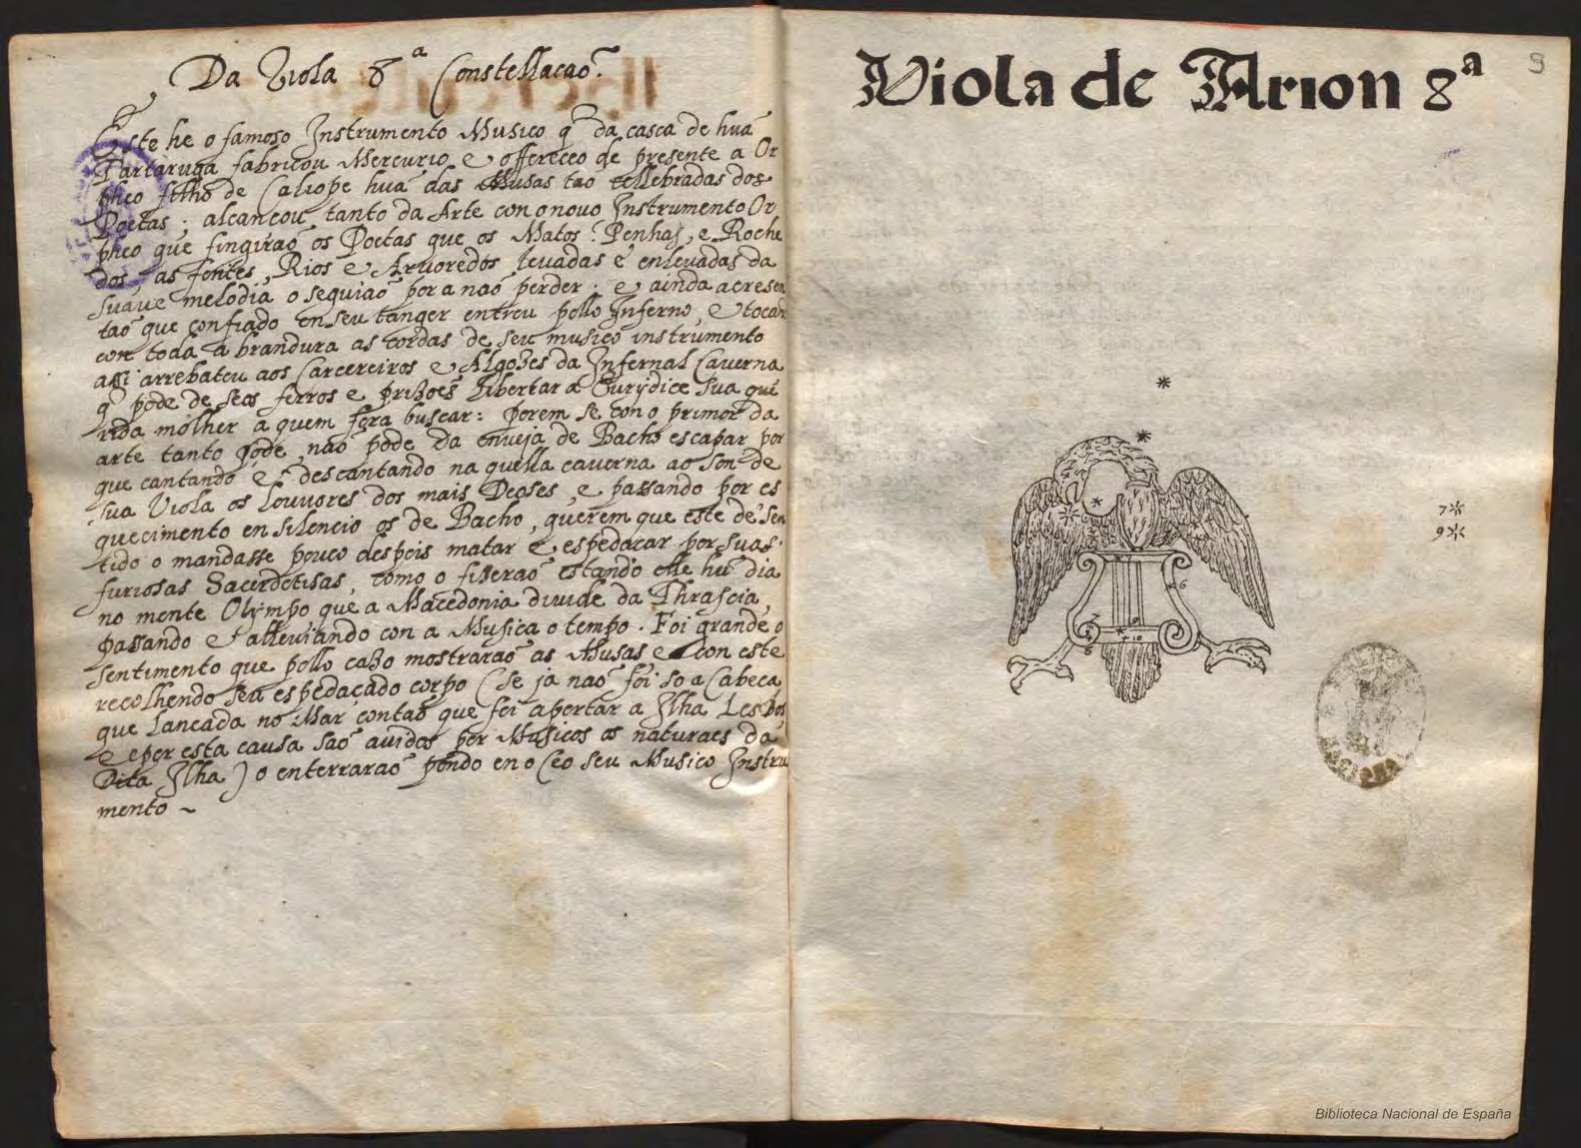 Da Viola 8ª Constellacaõ.
Este he o famoso Instrumento Musico q̃ da casca de huã
Tartaruga fabricou Mercurio e offereceo de presente a Or
pheo filho de Caliope huã das Musas tao cellebradas dos
Poetas; alcancou tanto da Arte con o nouo Instrumento Or
pheo que fingiraõ os Poetas que os Matos: Penhas, e Roche
dos, as fontes, Rios e Aruoredos leuadas e enleuadas da
suaue melodia o seguiaõ por a naõ perder: e ainda acresen
taõ que confiado en seu tanger entreu pello Inferno, e tocan
con toda a brandura as cordas de seu musico instrumento
assi arrebateu aos Carcereiros e Algozes da Infernal Cauerna
q̃ pode de seos ferros e prizoẽs libertar a Eurydice sua que
rida molher a quem fora buscar: porem se con o primor da
arte tanto pode, naõ pode da enueja de Bacho escapar por
que cantando e descantando na quella cauerna ao son de
sua Viola os louuores dos mais Deoses, e passando por es
quecimento en silencio os de Bacho, querem que este de sen
tido o mandasse pouco despois matar e espedacar por suas
furiosas Sacerdotisas, como o fizeraõ estando elle hũ dia
no mente Olympo que a Macedonia diuide da Thrascia,
passando e alleuiando con a Musica o tempo. Foi grande o
sentimento que pollo cazo mostraraõ as Musas e con este
recolhendo seu espedacado corpo (se ja naõ foi so a Cabeca
que lancada no Mar contaõ que foi aportar a Ilha Lesbos
e eper esta causa saõ auidos por Musicos os naturaes da
Dita Ilha) o enterraraõ pondo en o Ceo seu Musico Instru
mento ~
Viola de Arion 8ª
9
7*
9*
6
7
8
9
10
Biblioteca Nacional de España